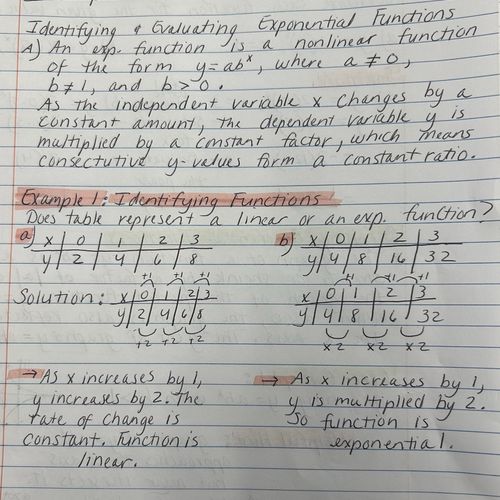 Identifying & Evaluating Exponential Functions
A) An exp. function is a nonlinear function
of the form y=abˣ, where a ≠ 0,
b ≠ 1, and b > 0.
As the independent variable x changes by a
constant amount, the dependent variable y is
multiplied by a constant factor, which means
consectutive y-values form a constant ratio.
Example 1: Identifying Functions
Does table represent a linear or an exp. function?
a) x | 0 | 1 | 2 | 3
y | 2 | 4 | 6 | 8
b) x | 0 | 1 | 2 | 3
y | 4 | 8 | 16 | 32
Solution:
+1 +1
x | 0 | 1 | 2 | 3
y | 2 | 4 | 6 | 8
+2 +2 +2
+1 +1 +1
x | 0 | 1 | 2 | 3
y | 4 | 8 | 16 | 32
x2 x2 x2
→ As x increases by 1,
y increases by 2. The
rate of change is
constant. Function is
linear.
→ As x increases by 1,
y is multiplied by 2.
So function is
exponential.